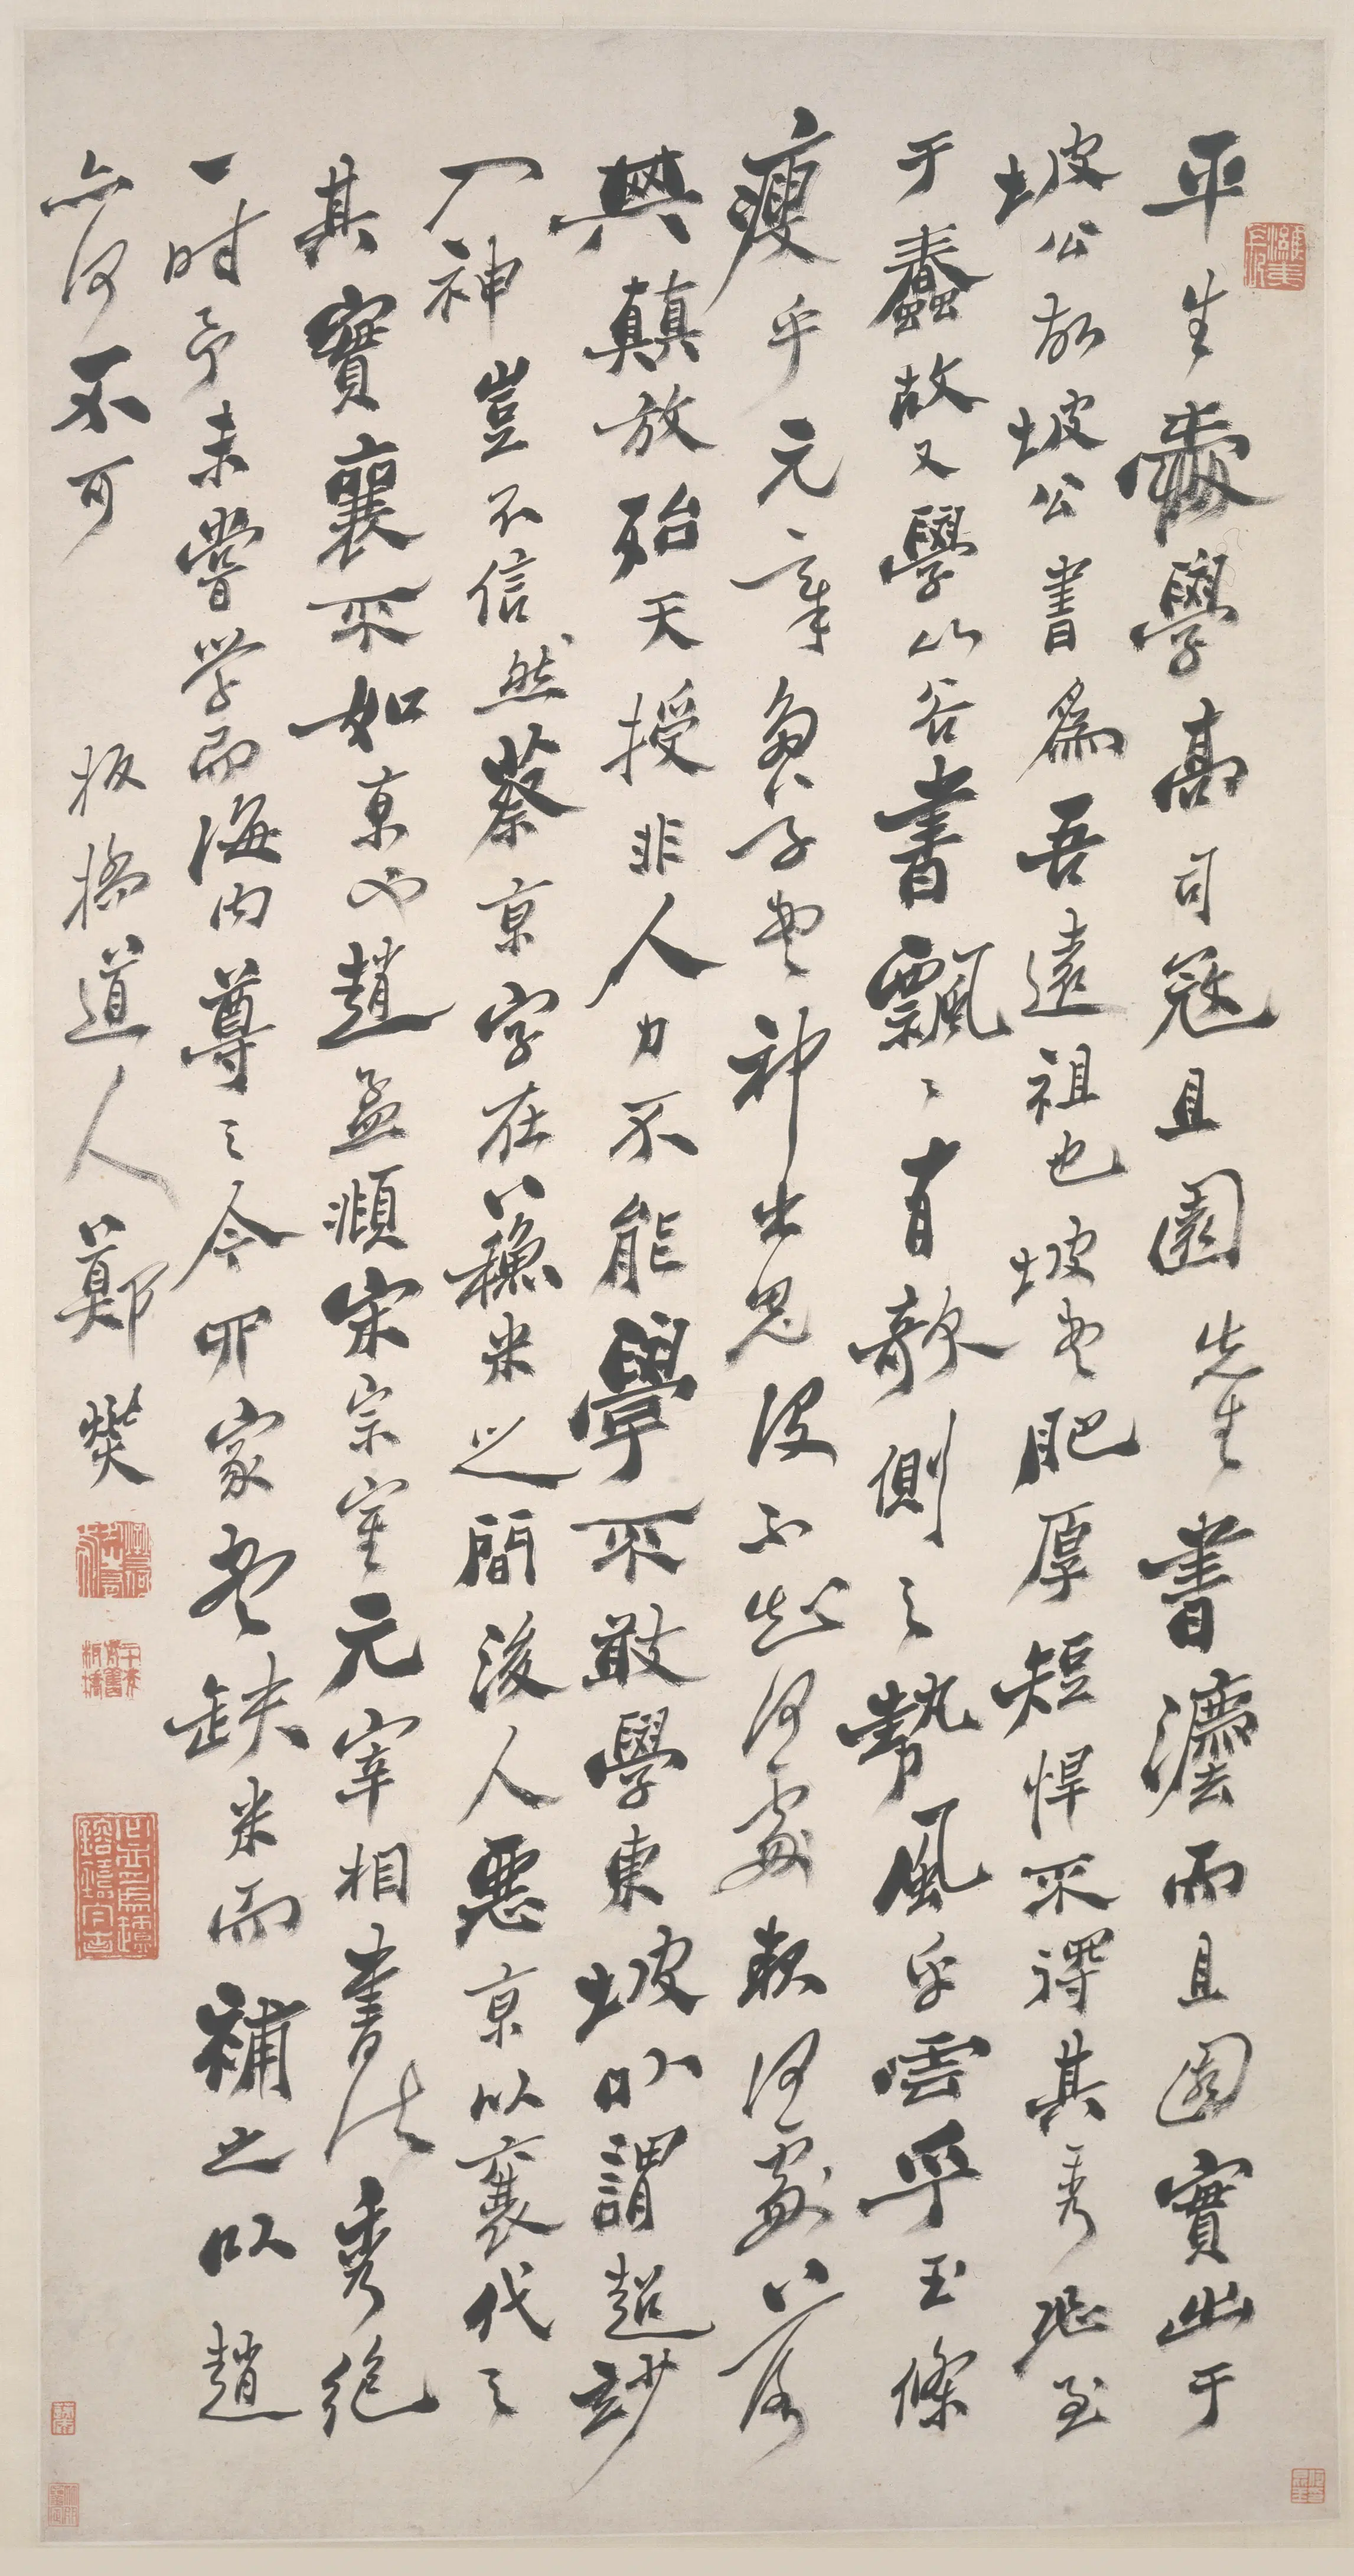 平生愛學高司寇且園先生書灋而且園實出于
坡公故坡公書爲吾遠祖也坡書肥厚短悍不得其秀恐至
于蠢故又學山谷書飄〻有欹側之勢風乎雲乎玉條
瘦乎元章多不書神出鬼没不知何處起何處落
其顛放殆天授非人力不能學不敢學東坡以謂超妙
入神豈不信然蔡京字在蘇米之間後人惡京以襄代之
其實襄不如京也趙孟頫宋宗室元宰相書法秀絶
一時予未嘗學而海内尊之今四家書缺米而補之以趙
亦何不可 板橋道人鄭燮
濰夷長